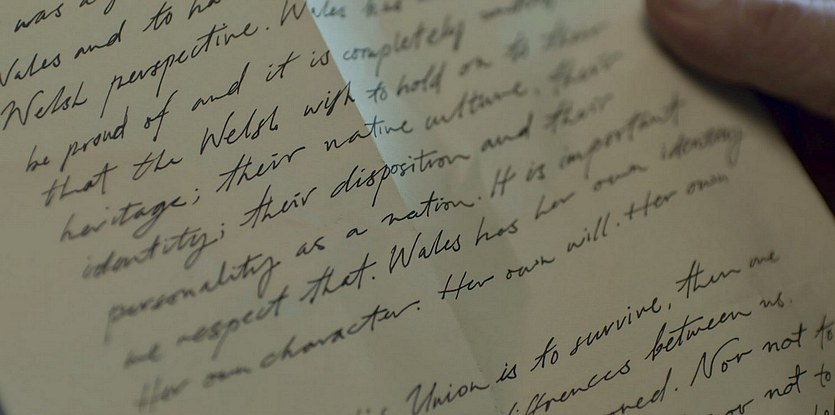 was a
Wales and to ha
Welsh perspective. Wales has
be proud of and it is completely
that the Welsh wish to hold on to their
heritage; their native culture, their
identity; their disposition and their
personality as a nation. It is important
we respect that. Wales has her own identity
Her own character. Her own will. Her own
Union is to survive, then we
differences between us.
oned. Nor not to
or not to